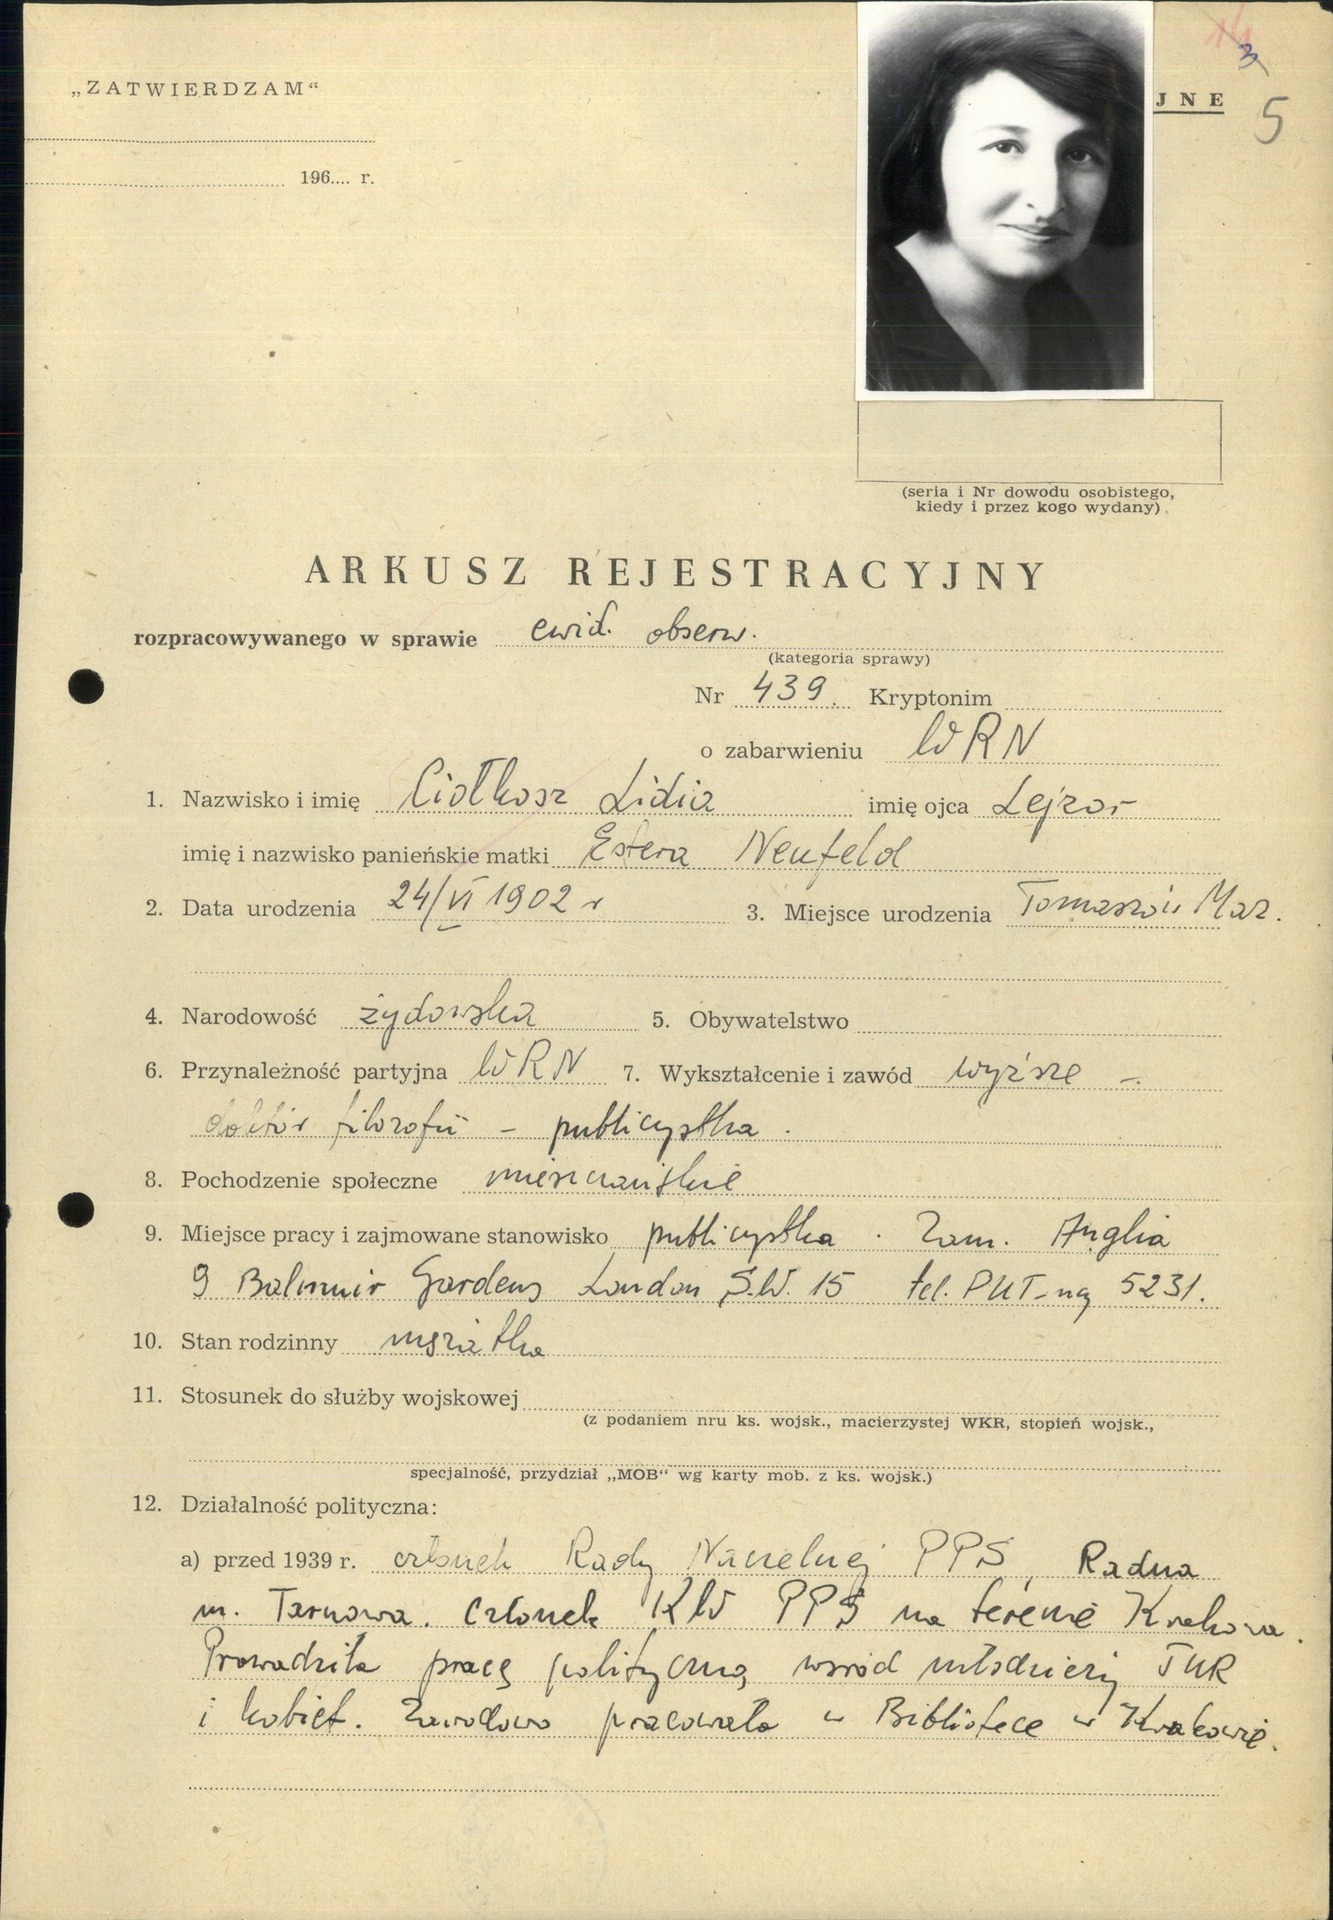 „ZATWIERDZAM“
JNE
3
5
196.... r.
(seria i Nr dowodu osobistego,
kiedy i przez kogo wydany)
ARKUSZ REJESTRACYJNY
rozpracowywanego w sprawie ewid. obserw.
(kategoria sprawy)
Nr 439. Kryptonim
o zabarwieniu WRN
1. Nazwisko i imię Ciołkosz Lidia imię ojca Lejzor
imię i nazwisko panieńskie matki Estera Neufeld
2. Data urodzenia 24/VI 1902 r 3. Miejsce urodzenia Tomaszów Maz.
4. Narodowość żydowska 5. Obywatelstwo
6. Przynależność partyjna WRN 7. Wykształcenie i zawód wyższe –
doktór filozofii – publicystka.
8. Pochodzenie społeczne mieszczańskie
9. Miejsce pracy i zajmowane stanowisko publicystka. Zam. Anglia
9 Balmuir Gardens London S.W. 15 tel. PUT-ney 5231.
10. Stan rodzinny mężatka
11. Stosunek do służby wojskowej
(z podaniem nru ks. wojsk., macierzystej WKR, stopień wojsk.,
specjalność, przydział „MOB“ wg karty mob. z ks. wojsk.)
12. Działalność polityczna:
a) przed 1939 r. członek Rady Naczelnej PPS, Radna
m. Tarnowa. Członek KW PPS na terenie Krakowa.
Prowadziła pracę polityczną wśród młodzieży TUR
i kobiet. Zawodowo pracowała w Bibliotece w Krakowie.